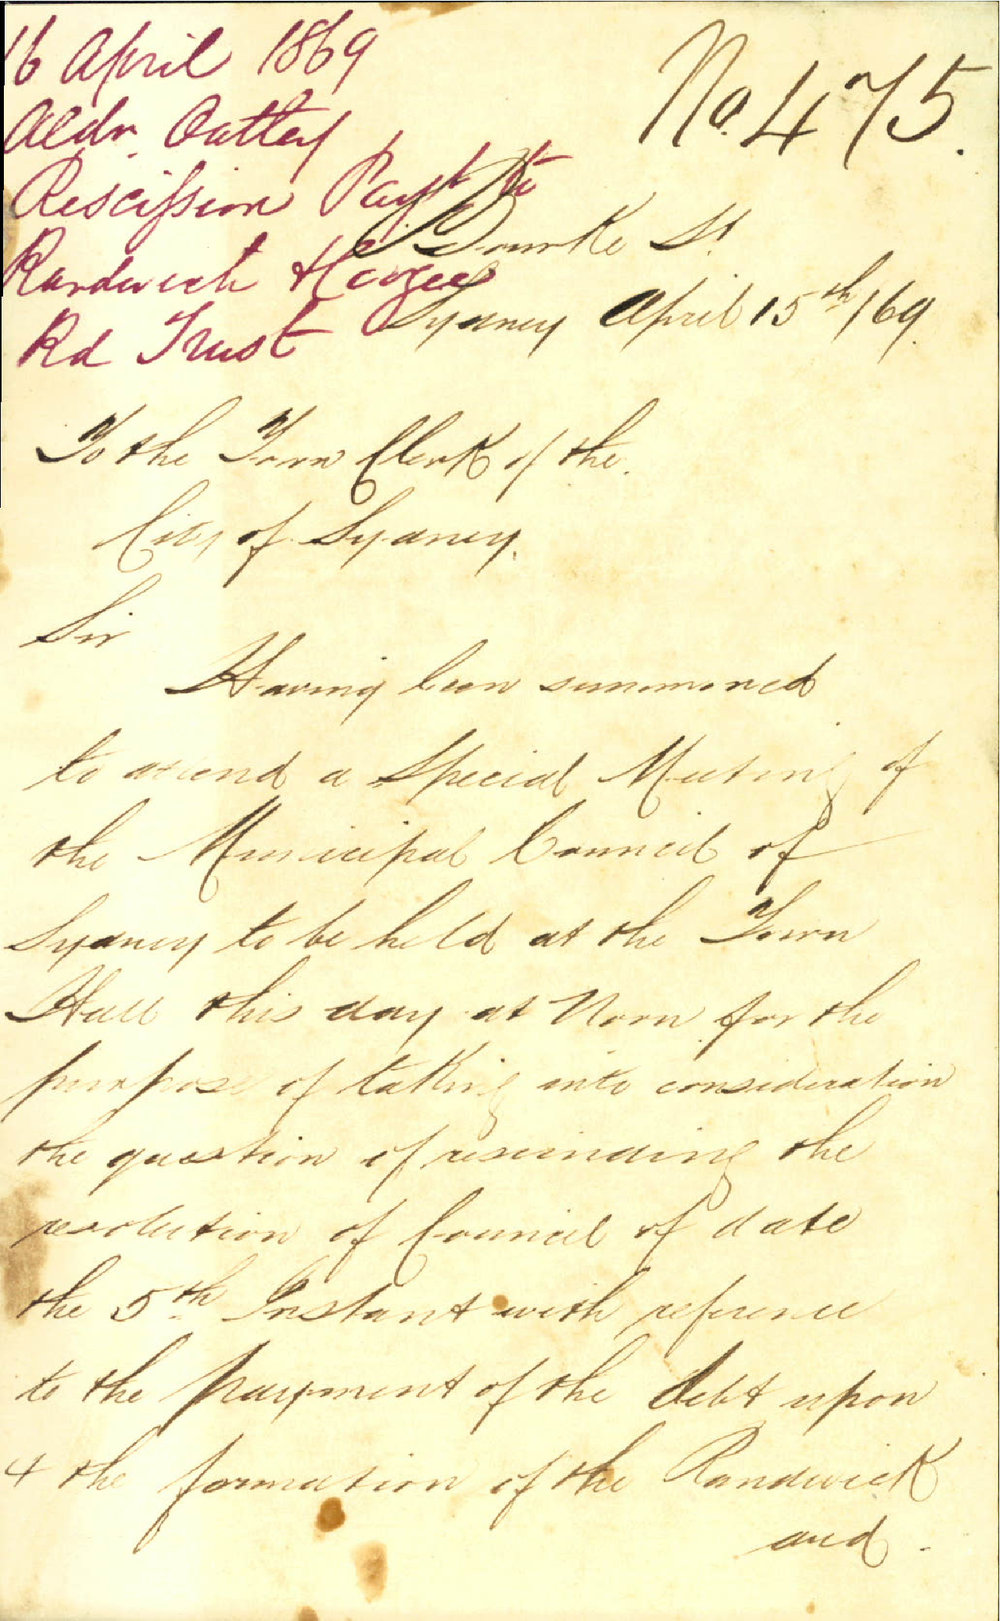 16 April 1869
Aldn. Oatley
Rescission Paymt to
Randwick & Coogee
Rd Trust
No. 475.
Bourke St.
Sydney April 15th/69.
To the Town Clerk of the
City of Sydney.
Sir
Having been summoned
to attend a Special Meeting of
the Municipal Council of
Sydney to be held at the Town
Hall this day at Noon for the
purpose of taking into consideration
the question of rescinding the
resolution of Council of date
the 5th Instant with reference
to the payment of the debt upon
& the formation of the Randwick
and